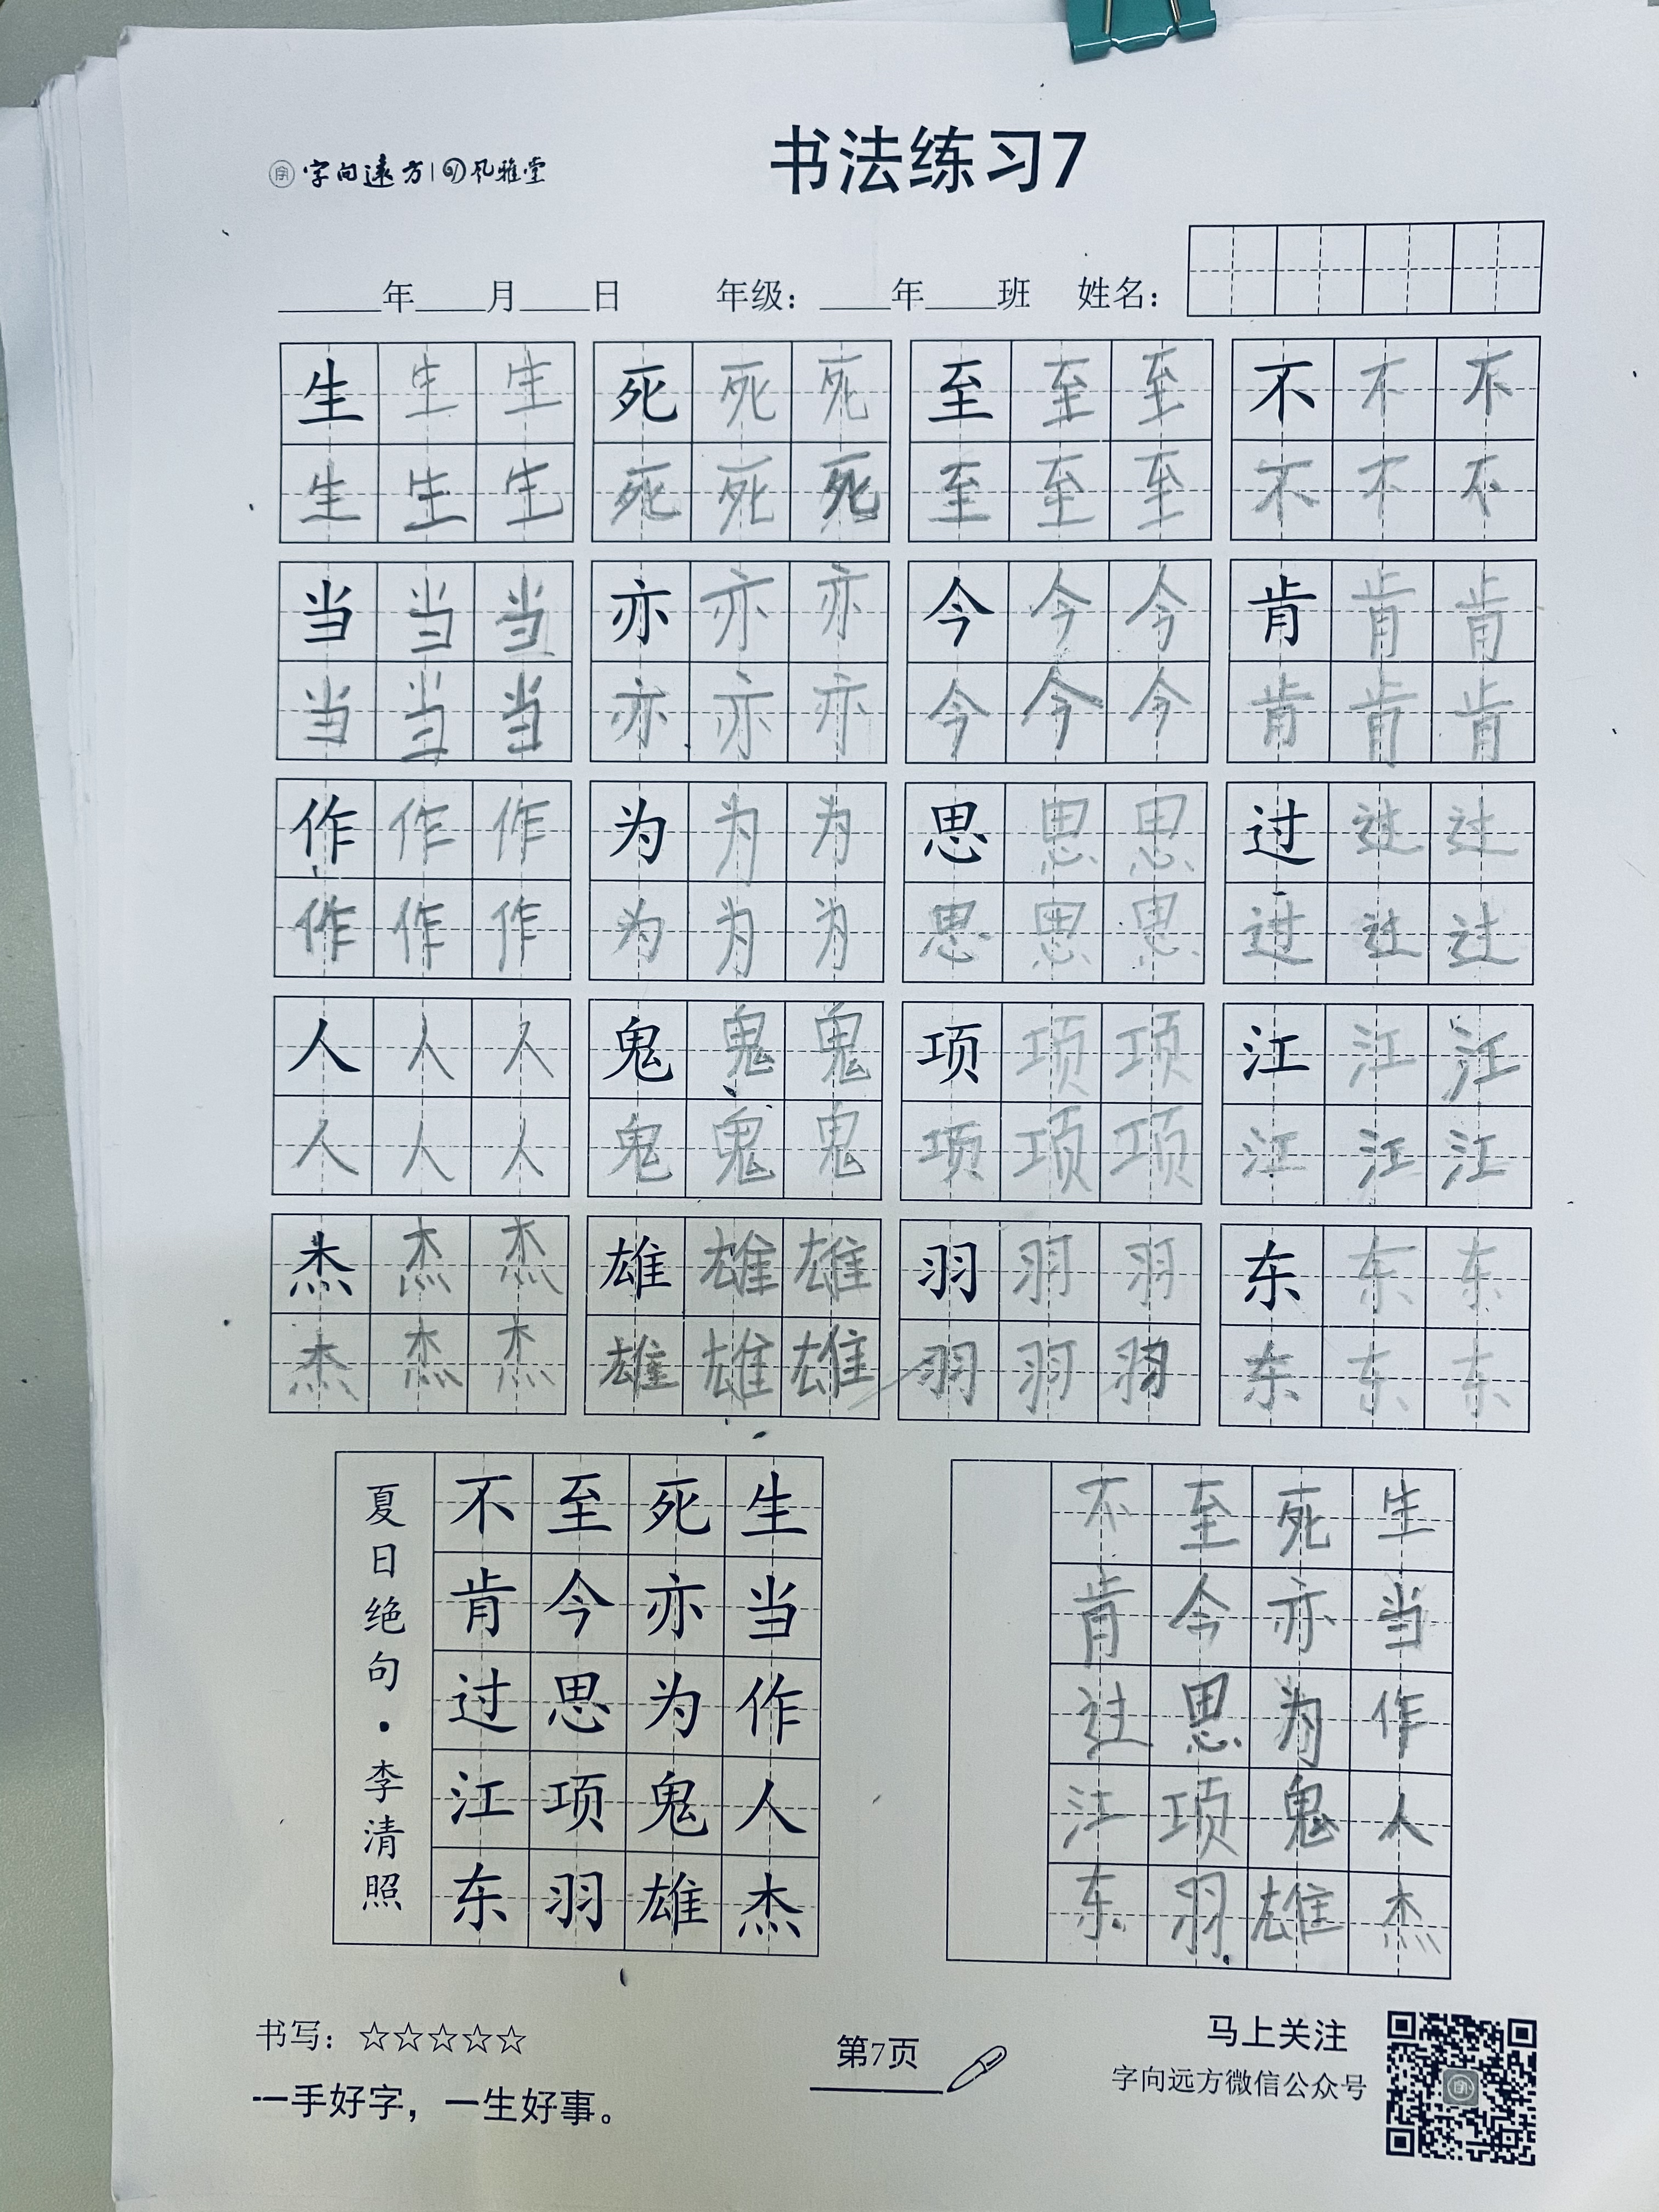 字向遠方 | 风雅堂
书法练习7
年 月 日 年级： 年 班 姓名：
生生生 死死死 至至至 不不不
生生生 死死死 至至至 不不不
当当当 亦亦亦 今今今 肯肯肯
当当当 亦亦亦 今今今 肯肯肯
作作作 为为为 思思思 过过过
作作作 为为为 思思思 过过过
人人人 鬼鬼鬼 项项项 江江江
人人人 鬼鬼鬼 项项项 江江江
杰杰杰 雄雄雄 羽羽羽 东东东
杰杰杰 雄雄雄 羽羽羽 东东东
生当作人杰
死亦为鬼雄
至今思项羽
不肯过江东
夏日绝句·李清照
生当作人杰
死亦为鬼雄
至今思项羽
不肯过江东
书写：☆☆☆☆☆
一手好字，一生好事。
第7页
马上关注
字向远方微信公众号